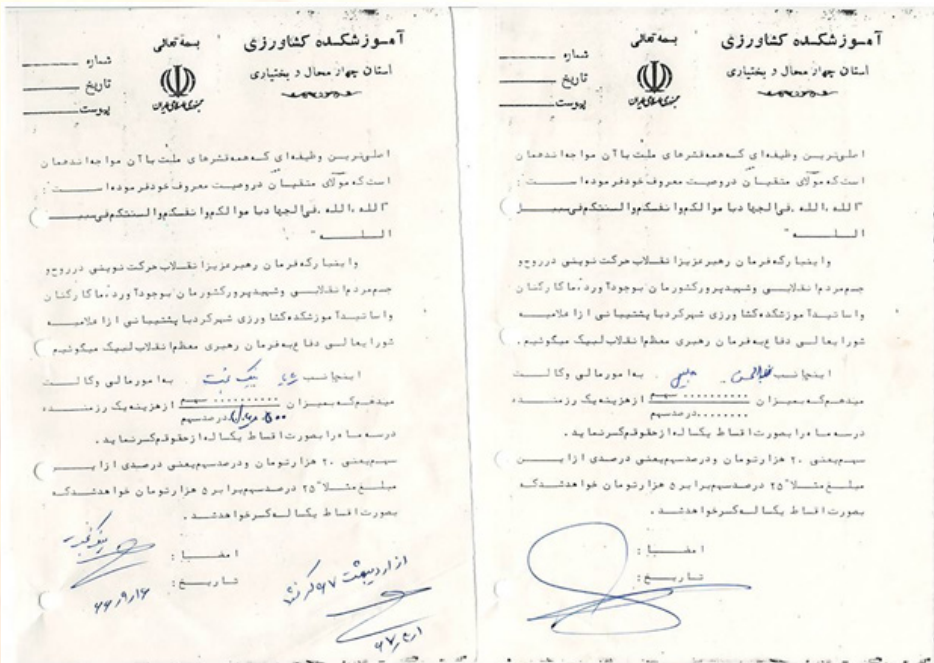 آموزشکده کشاورزی
استان چهار محال و بختیاری
بسمه تعالی
جمهوری اسلامی ایران
شماره
تاریخ
پیوست
اصلی‌ترین وظیفه‌ای که همه قشرهای ملت با آن مواجه‌اند همان
است که مولای متقیان در وصیت معروف خود فرموده است :
"الله ، الله ، فی الجهاد باموالکم و انفسکم و السنتکم فی سبیل
الله "
و اینبار که فرمان رهبر عزیز انقلاب حرکت نوینی در روح و
جسم مردم انقلابی و شهیدپرور کشورمان بوجود آورده ، ما کارکنان
و اساتید آموزشکده کشاورزی شهرکرد با پشتیبانی از اعلامیه
شورایعالی دفاع به فرمان رهبری معظم انقلاب لبیک میگوئیم .
اینجانب نیک بخت . به امور مالی وکالت
میدهم که بمیزان .......... سهم از هزینه یک رزمنده
درصد سهم
در سه ماه را بصورت اقساط یکساله از حقوقم کسر نماید .
سهم یعنی ۲۰ هزار تومان و درصد سهم یعنی درصدی از این
مبلغ مثلا" ۲۵ درصد سهم برابر ۵ هزار تومان خواهد شد که
بصورت اقساط یکساله کسر خواهد شد .
امضا :
تاریخ :
۶۶٫۹٫۱۶
از اردیبهشت ۶۷ کسر
آموزشکده کشاورزی
استان چهار محال و بختیاری
بسمه تعالی
جمهوری اسلامی ایران
شماره
تاریخ
پیوست
اصلی‌ترین وظیفه‌ای که همه قشرهای ملت با آن مواجه‌اند همان
است که مولای متقیان در وصیت معروف خود فرموده است :
"الله ، الله ، فی الجهاد باموالکم و انفسکم و السنتکم فی سبیل
الله "
و اینبار که فرمان رهبر عزیز انقلاب حرکت نوینی در روح و
جسم مردم انقلابی و شهیدپرور کشورمان بوجود آورده ، ما کارکنان
و اساتید آموزشکده کشاورزی شهرکرد با پشتیبانی از اعلامیه
شورایعالی دفاع به فرمان رهبری معظم انقلاب لبیک میگوئیم .
اینجانب . به امور مالی وکالت
میدهم که بمیزان .......... سهم از هزینه یک رزمنده
........ درصد سهم
در سه ماه را بصورت اقساط یکساله از حقوقم کسر نماید .
سهم یعنی ۲۰ هزار تومان و درصد سهم یعنی درصدی از این
مبلغ مثلا" ۲۵ درصد سهم برابر ۵ هزار تومان خواهد شد که
بصورت اقساط یکساله کسر خواهد شد .
امضا :
تاریخ :